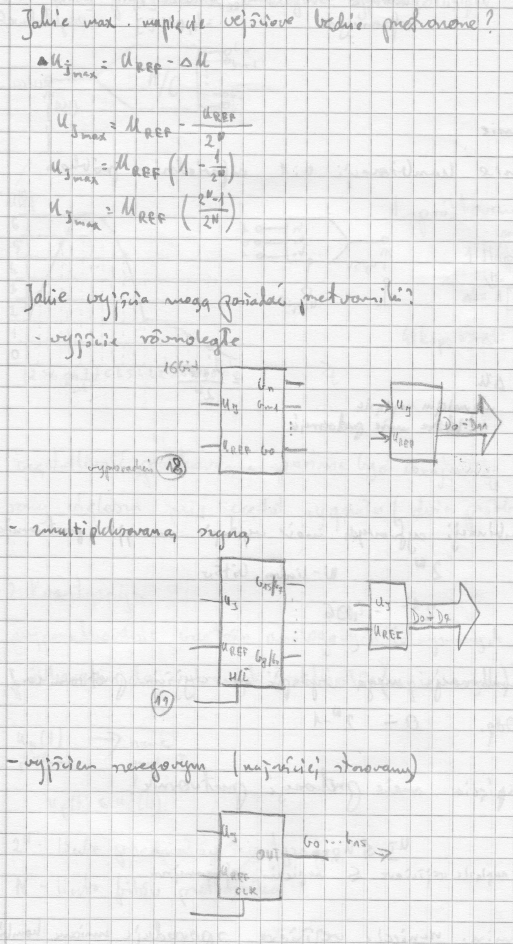 Jakie max. napięcie wejściowe będzie przetworzone?
U_Jmax = U_REF - ΔU
U_Jmax = U_REF - U_REF/2^N
U_Jmax = U_REF (1 - 1/2^N)
U_Jmax = U_REF (2^N-1/2^N)
Jakie wyjścia mogą posiadać przetworniki?
- wyjście równoległe
16bit
U_J
U_REF
b_n
b_n-1
⋮
b_0
U_J
U_REF
D0÷Dn
wyprowadzeń 18
- zmultipleksowaną szyną
U_J
U_REF
H/L̅
b15/b7
⋮
b8/b0
U_J
U_REF
D0÷D7
11
- wyjściem szeregowym (najczęściej stosowany)
U_J
U_REF
CLK
OUT
b0...b15